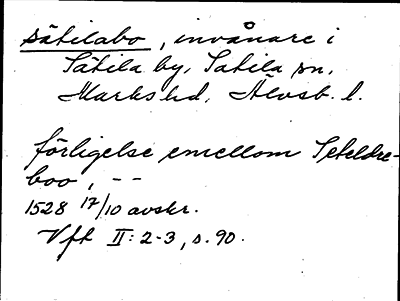 sätilabo, invånare i
Sätila by, Sätila sn,
Marks hd, Älvsb. l.
förligelse emellom Seteldre-
boo, --
1528 17/10 avskr.
Vft II: 2-3, s. 90.